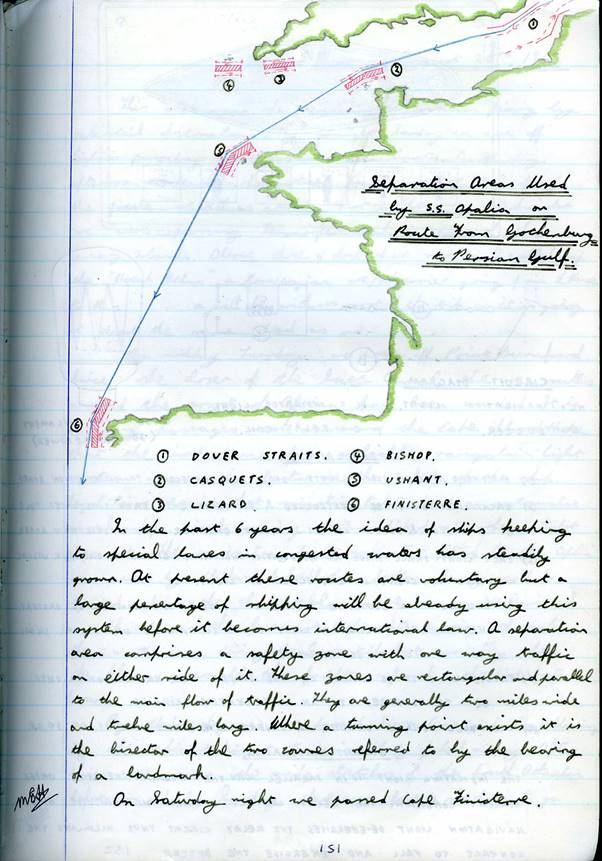 ①
②
④
③
⑤
Separation Areas Used
by S.S. Opalia on
Route From Gothenburg
to Persian Gulf.
⑥
① DOVER STRAITS. ④ BISHOP.
② CASQUETS. ⑤ USHANT.
③ LIZARD ⑥ FINISTERRE.
In the past 6 years the idea of ships keeping
to special lanes in congested waters has steadily
grown. At present these routes are voluntary but a
large percentage of shipping will be already using this
system before it becomes international law. A separation
area comprises a safety zone with one way traffic
on either side of it. These zones are rectangular and parallel
to the main flow of traffic. They are generally two miles wide
and twelve miles long. Where a turning point exists it is
the bisector of the two courses referred to by the bearing
of a landmark.
On Saturday night we passed Cape Finisterre.
151